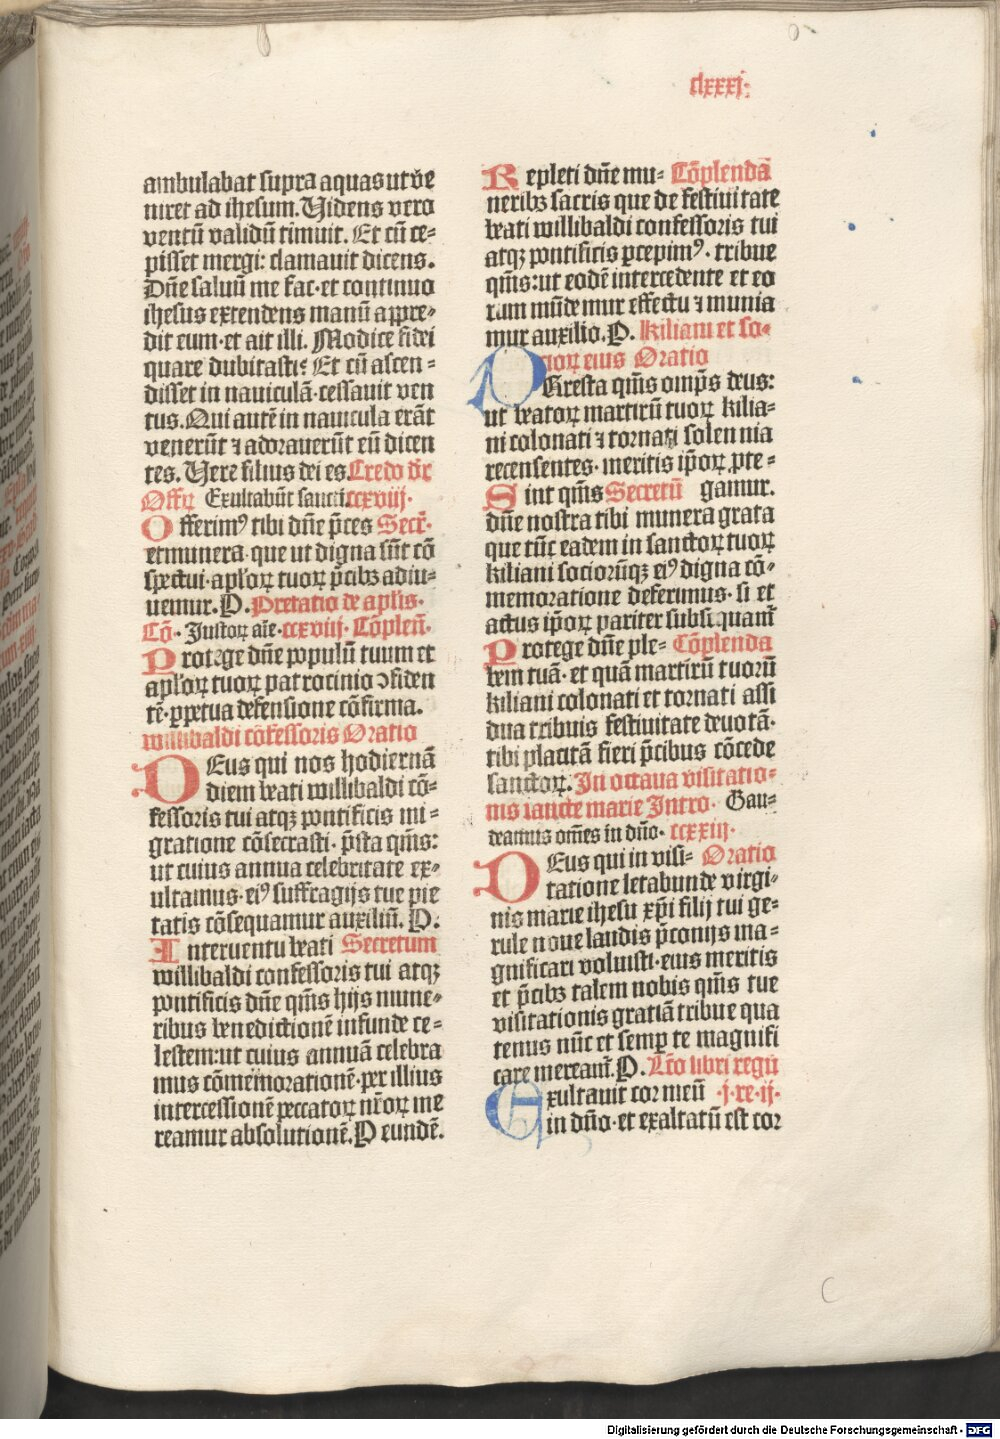 clxxxj·
ambulabat supra aquas ut ve
niret ad ihesum. Videns vero
ventū validū timuit. Et cū ce⸗
pisset mergi: clamauit dicens.
Dn̄e saluū me fac· et continuo
ihesus extendens manū appre⸗
dit eum· et ait illi. Modice fidei
quare dubitasti? Et cū ascen⸗
disset in nauiculā· cessauit ven
tus. Qui autē in nauicula erāt
venerūt ⁊ adorauerūt eū dicen
tes. Vere filius dei es. Credo dr̄
Offꝝ Exultabūt sancti. ccxviij·
Offerimꝰ tibi dn̄e p̄ces Secr̄·
et munera· que ut digna sūt cō
spectui· apl'oꝝ tuoꝝ p̄cibꝫ adiu⸗
uemur. P. Prefatio de apl'is·
Cō· Iustoꝝ aīe· ccxviij· Cōplen̄·
Protege dn̄e populū tuum et
apl'oꝝ tuoꝝ patrocinio ꝯfiden
tē· ꝑpetua defensione cōfirma.
willibaldi cōfessoris Oratio
DEus qui nos hodiernā
diem beati willibaldi cō⸗
fessoris tui atqꝫ pontificis mi⸗
gratione cōsecrasti· p̄sta qm̄s:
ut cuius annua celebritate ex⸗
ultamus· eiꝰ suffragijs tue pie
tatis cōsequamur auxiliū. P.
Interuentu beati Secretum
willibaldi confessoris tui atqꝫ
pontificis dn̄e qm̄s hijs mune⸗
ribus benedictionē infunde ce⸗
lestem: ut cuius annuā celebra
mus cōmemorationē· per illius
intercessionē peccatoꝝ nr̄oꝝ me
reamur absolutionē. P eundē.
Repleti dn̄e mu⸗ Cōplendā
neribꝫ sacris que de festiuitate
beati willibaldi confessoris tui
atqꝫ pontificis ꝑcepimꝰ· tribue
qm̄s: ut eodē intercedente et eo
rum mūdemur effectu ⁊ munia
mur auxilio. P. Kiliani et so⸗
cioꝝ eius Oratio
PResta qm̄s omp̄s deus:
ut beatoꝝ martirū tuoꝝ kilia⸗
ni colonati ⁊ tornati solennia
recensentes· meritis ip̄oꝝ ꝓte⸗
Sint qm̄s Secretū gamur.
dn̄e nostra tibi munera grata
que tūc eadem in sanctoꝝ tuoꝝ
kiliani sociorūqꝫ eiꝰ digna cō⸗
memoratione deferimus· si et
actus ip̄oꝝ pariter subsequant̄
Protege dn̄e ple⸗ Cōplenda
bem tuā· et quā martirū tuorū
kiliani colonati et tornati assi
dua tribuis festiuitate deuotā·
tibi placitā fieri p̄cibus cōcede
sanctoꝝ. In octaua visitatio⸗
nis sancte marie Intro· Gau⸗
deamus om̄es in dn̄o· ccxxiij·
DEus qui in visi⸗ Oratio
tatione letabunde virgi⸗
nis marie ihesu xp̄i filij tui ge⸗
rule noue laudis p̄conijs ma⸗
gnificari voluisti· eius meritis
et p̄cibꝫ talem nobis qm̄s tue
visitationis gratiā tribue qua
tenus nūc et semꝑ te magnifi
care mereant̄. P. Lc̄o libri regū
Exultauit cor meū ·j· re· ij·
in dn̄o· et exaltatū est cor
Digitalisierung gefördert durch die Deutsche Forschungsgemeinschaft - DFG